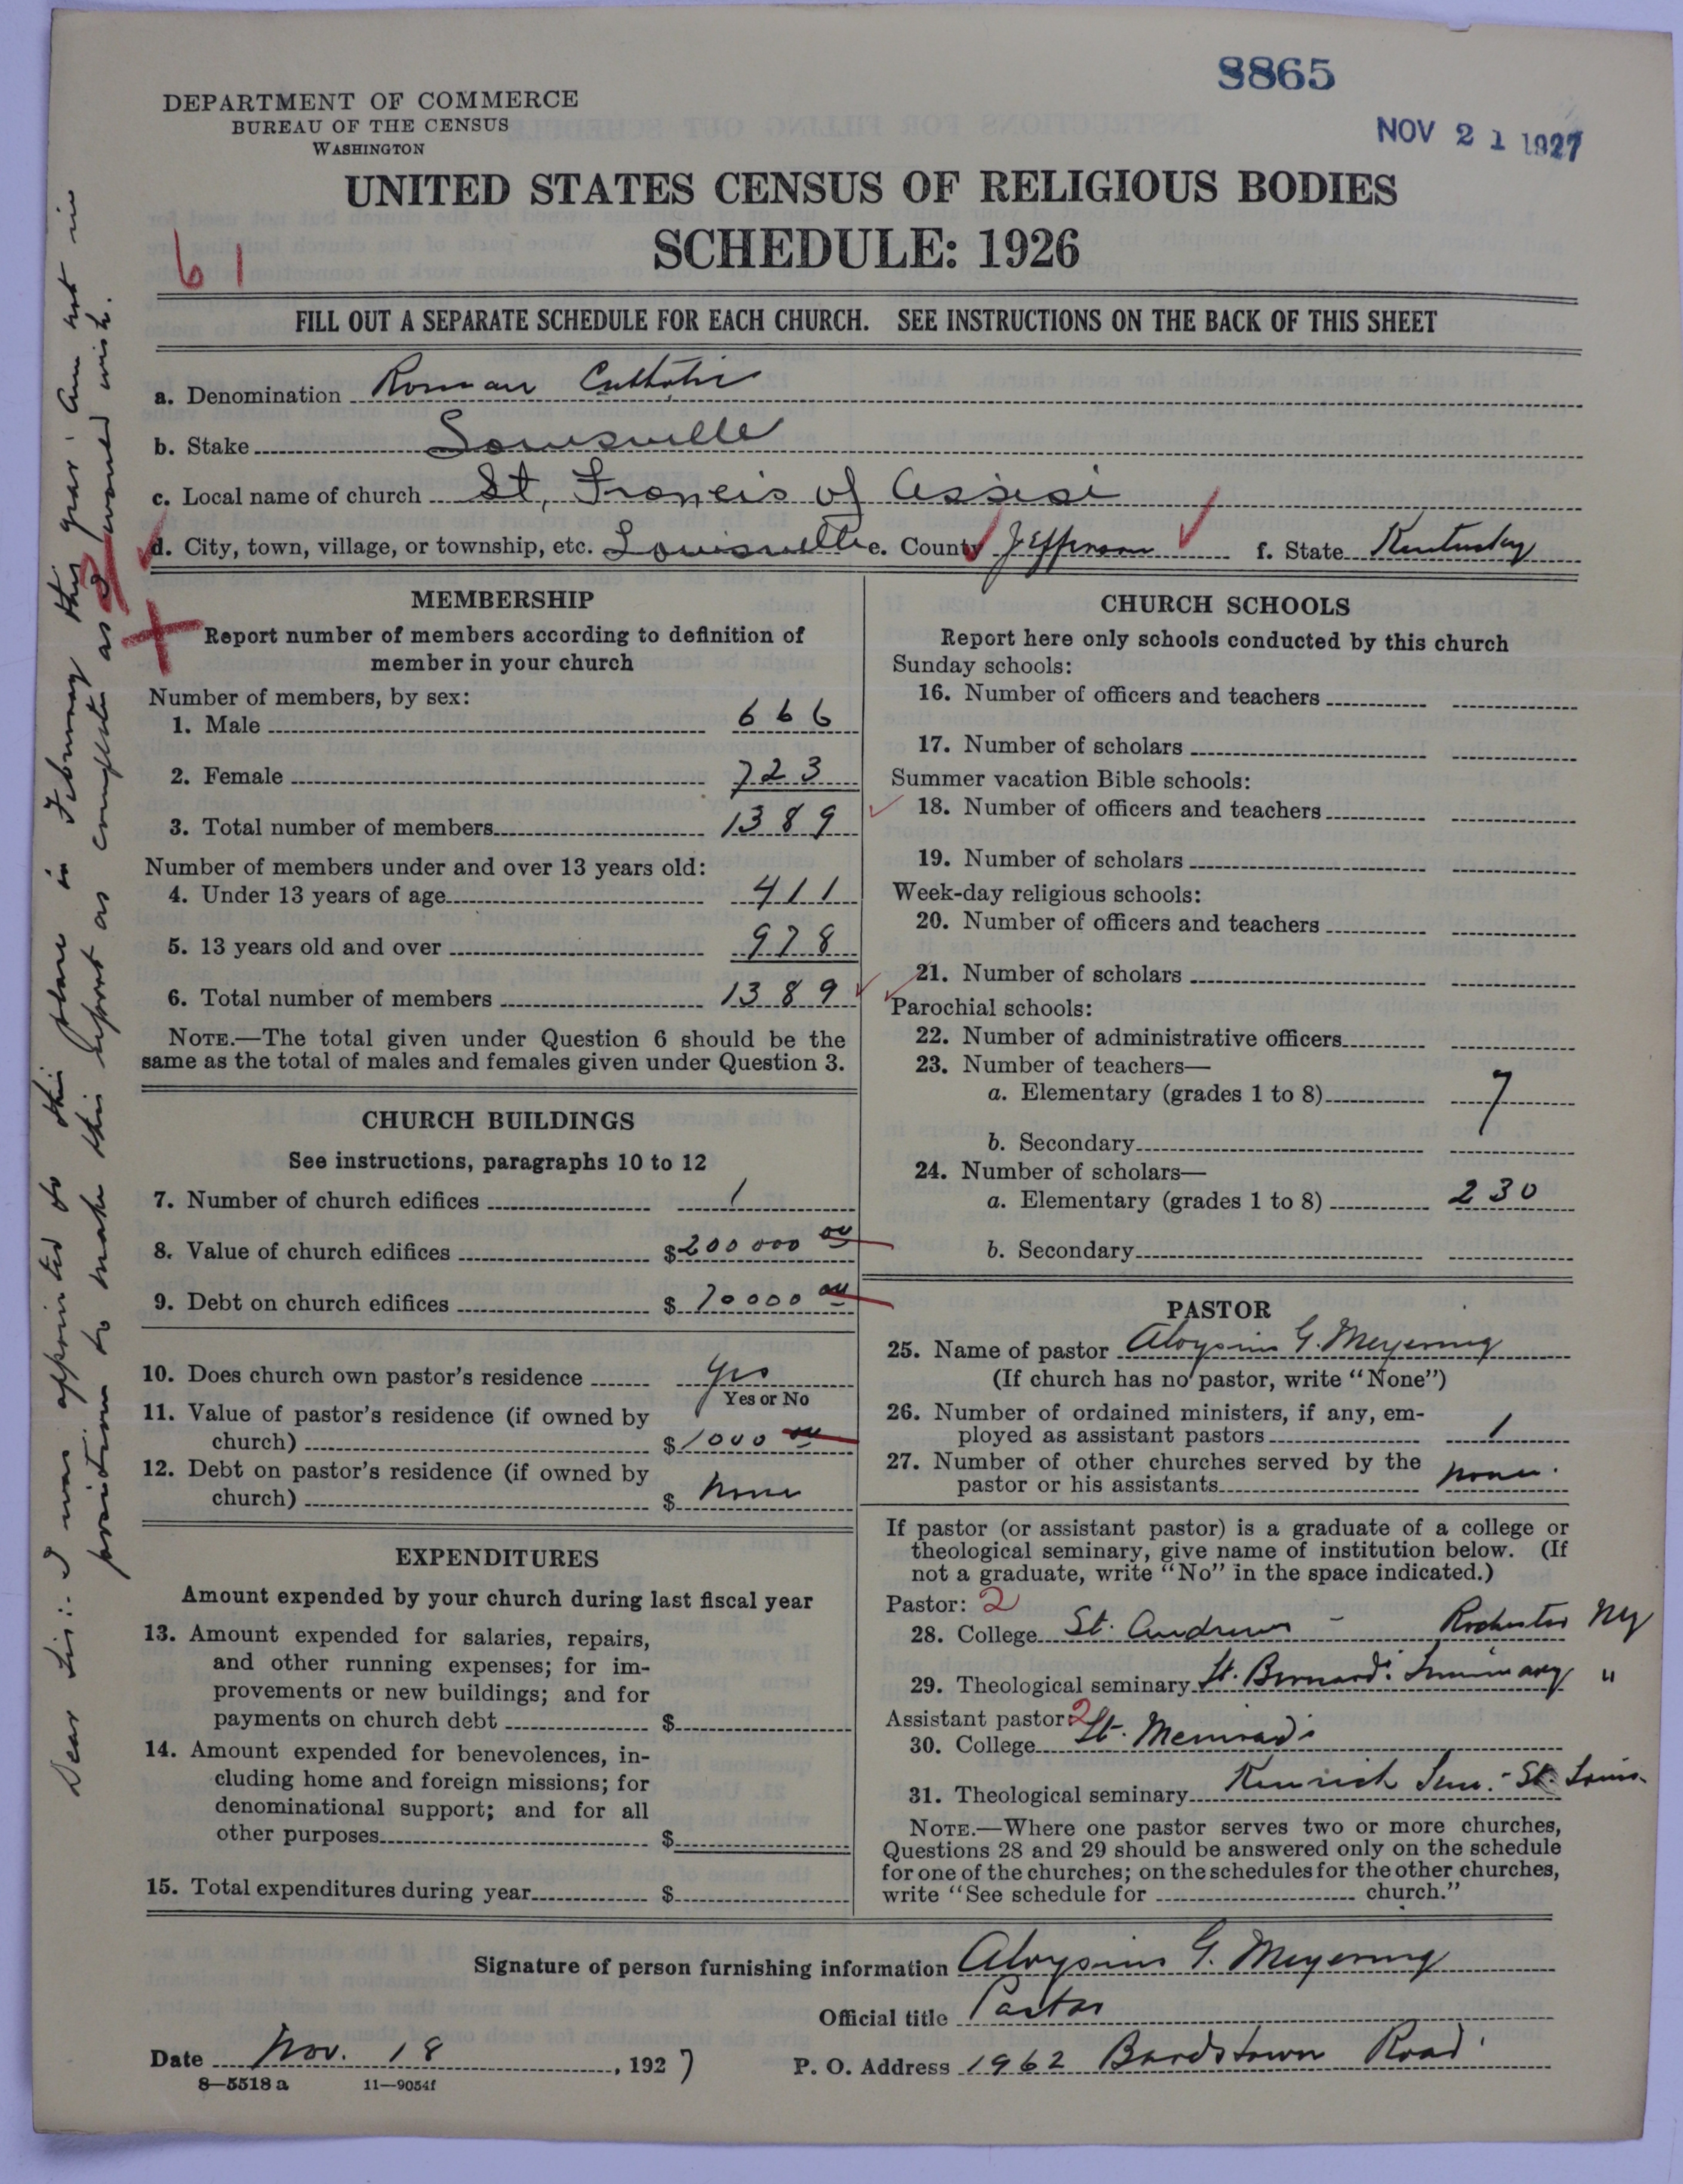 8865
DEPARTMENT OF COMMERCE
BUREAU OF THE CENSUS
WASHINGTON
NOV 21 1927
UNITED STATES CENSUS OF RELIGIOUS BODIES
SCHEDULE: 1926
61
FILL OUT A SEPARATE SCHEDULE FOR EACH CHURCH. SEE INSTRUCTIONS ON THE BACK OF THIS SHEET
a. Denomination Roman Catholic
b. Stake Louisville
c. Local name of church St. Francis of Assisi
d. City, town, village, or township, etc. Louisville e. County Jefferson f. State Kentucky
MEMBERSHIP
Report number of members according to definition of
member in your church
Number of members, by sex:
1. Male 666
2. Female 723
3. Total number of members 1389
Number of members under and over 13 years old:
4. Under 13 years of age 411
5. 13 years old and over 978
6. Total number of members 1389
NOTE.—The total given under Question 6 should be the
same as the total of males and females given under Question 3.
CHURCH BUILDINGS
See instructions, paragraphs 10 to 12
7. Number of church edifices 1
8. Value of church edifices $200000 00
9. Debt on church edifices $70000 00
10. Does church own pastor's residence Yes
Yes or No
11. Value of pastor's residence (if owned by
church) $1000 00
12. Debt on pastor's residence (if owned by
church) $ None
EXPENDITURES
Amount expended by your church during last fiscal year
13. Amount expended for salaries, repairs,
and other running expenses; for im-
provements or new buildings; and for
payments on church debt $
14. Amount expended for benevolences, in-
cluding home and foreign missions; for
denominational support; and for all
other purposes $
15. Total expenditures during year $
CHURCH SCHOOLS
Report here only schools conducted by this church
Sunday schools:
16. Number of officers and teachers
17. Number of scholars
Summer vacation Bible schools:
18. Number of officers and teachers
19. Number of scholars
Week-day religious schools:
20. Number of officers and teachers
21. Number of scholars
Parochial schools:
22. Number of administrative officers
23. Number of teachers—
a. Elementary (grades 1 to 8) 7
b. Secondary
24. Number of scholars—
a. Elementary (grades 1 to 8) 230
b. Secondary
PASTOR
25. Name of pastor Aloysius G. Meyering
(If church has no pastor, write "None")
26. Number of ordained ministers, if any, em-
ployed as assistant pastors 1
27. Number of other churches served by the
pastor or his assistants none.
If pastor (or assistant pastor) is a graduate of a college or
theological seminary, give name of institution below. (If
not a graduate, write "No" in the space indicated.)
Pastor: 2
28. College St. Andrews - Rochester NY
29. Theological seminary St. Bernard's Seminary "
Assistant pastor: 2
30. College St. Meinrads
31. Theological seminary Kenrick Sem. - St. Louis.
NOTE.—Where one pastor serves two or more churches,
Questions 28 and 29 should be answered only on the schedule
for one of the churches; on the schedules for the other churches,
write "See schedule for church."
Signature of person furnishing information Aloysius G. Meyering
Official title Pastor
Date Nov. 18, 1927 P. O. Address 1962 Bardstown Road.
8—5518a 11—9054f
Dear Sir:- I was appointed to this place in February this year. Am not in
position to make this report as complete as I would wish.